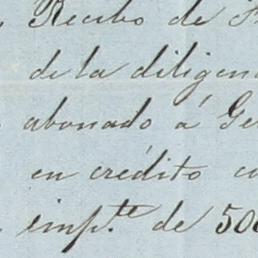 Recibo de
de la diligen
abonado á Ge
en crédito co
imp.te de 500